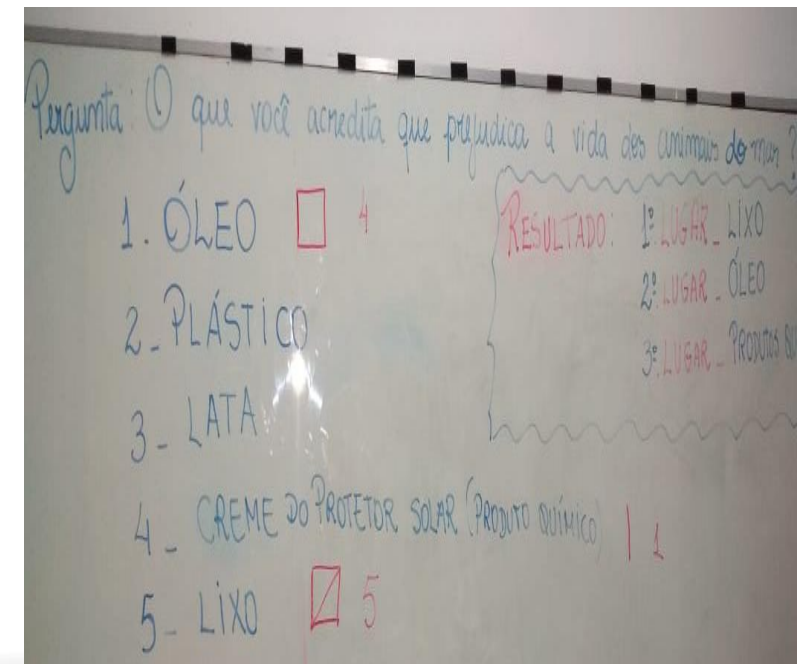 Pergunta: O que você acredita que prejudica a vida dos animais do mar?
1. ÓLEO 4
2_ PLÁSTICO
3_ LATA
4_ CREME DO PROTETOR SOLAR (PRODUTO QUÍMICO) 1
5_ LIXO 5
RESULTADO: 1º LUGAR_ LIXO
2º LUGAR_ ÓLEO
3º LUGAR_ PRODUTOS